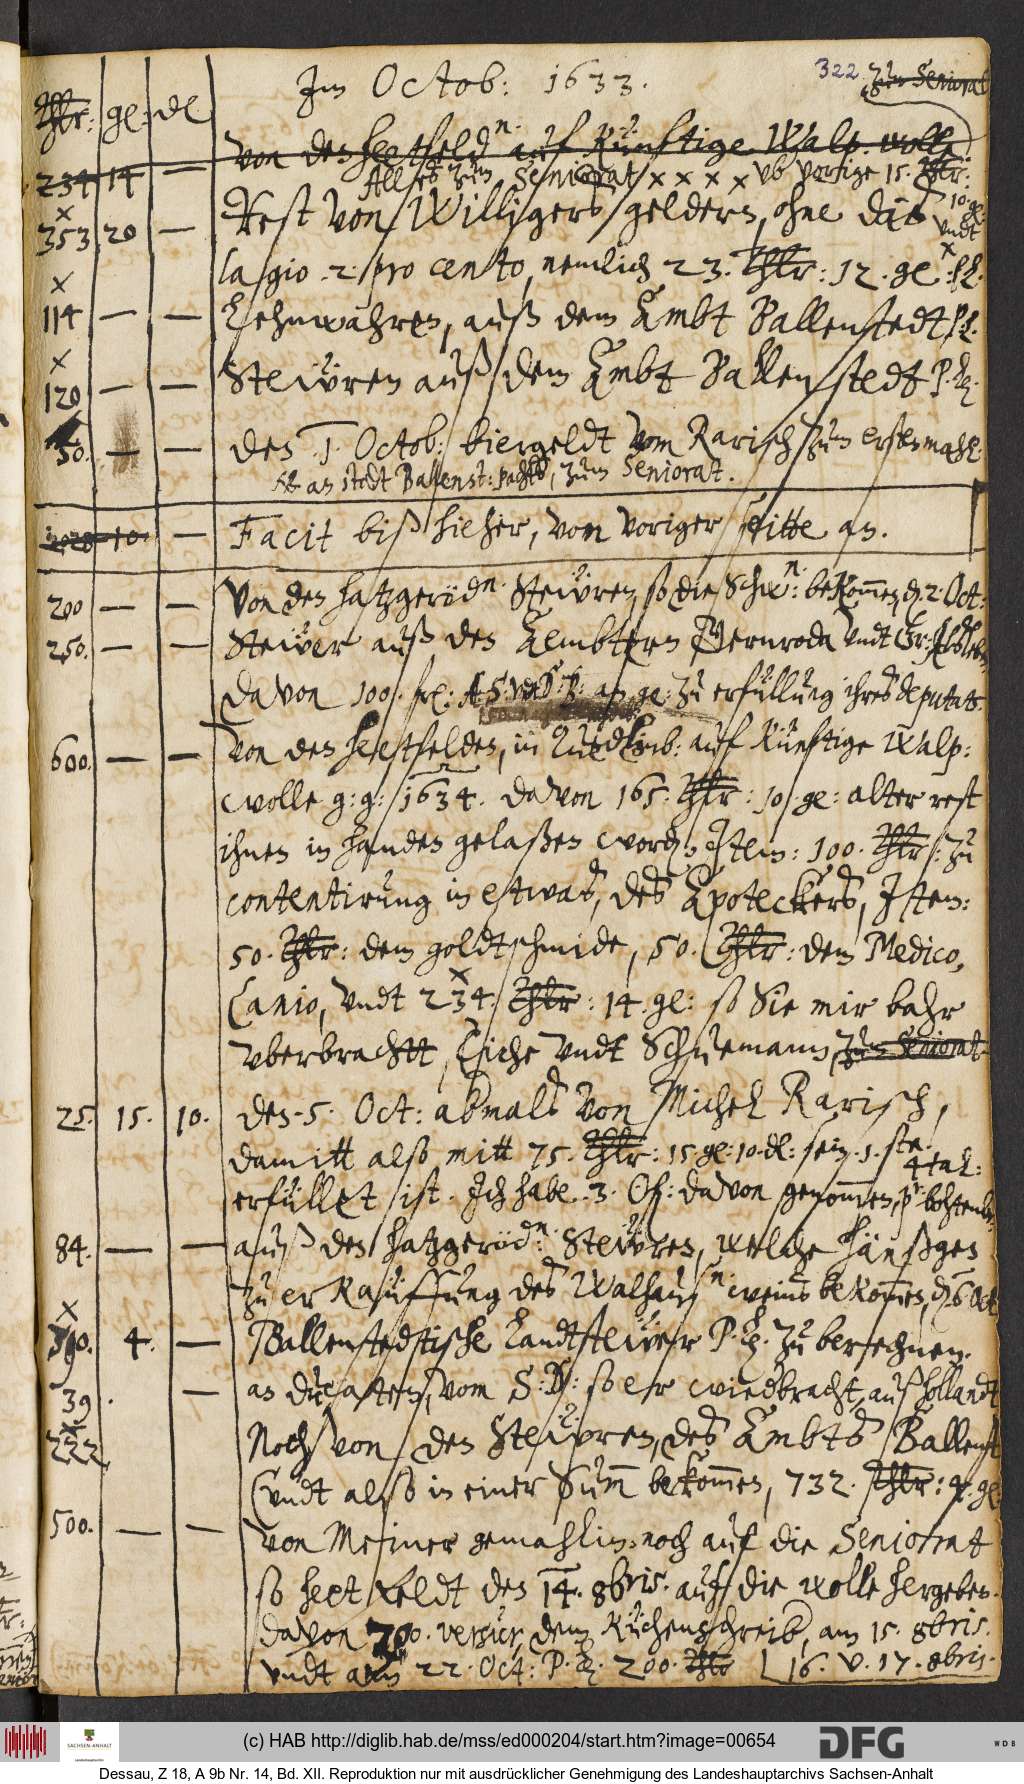 Im Octob: 1633.
322 Zum Seniorat
Thlr: gl: dl
234 14 — Von den Heetfeldn. auf Künftige Walp. wolle
Alles zum Seniorat x x x x vb vorige 15. Thlr:
10 gl: vndt
353 20 — Rest von Willigers geldern, ohne die
lagio 2 pro cento, nemlich 23. Thlr: 12. gl: P.L.
114 — — Lehnwahren, auß dem Ambt Ballenstedt P.L.
120 — — Steüren auß dem Ambt Ballenstedt P. L.
50. — — Den .1. Octob: biergeldt vom Rarisch zum ersten mahl.
an stadt Ballenst: pacht, zum Seniorat.
10. — Facit biß hieher, von voriger seitte an.
200 — — Von den Hatzgerödn. Steüren, so die Schwn: bekommen, d. 2. Oct:
250. — — Steüer auß den Aembtern Gernroda vndt Gr: Alsleben,
davon 100. zu erfüllung ihres deputats.
600. — — Von den Heetfelden, in auf Künftige Walp:
wolle g: g: 1634. davon 165. Thlr: 10 gl: alter rest
ihnen in handen gelaßen word. Item: 100. Thlr: zu
contentirung in etwas, des Apoteckers, Item:
50. Thlr: dem goldtschmide, 50. Thlr: dem Medico,
Canio, vndt 234. Thlr: 14. gl: so Sie mir bahr
vberbrachtt, Eiche vndt Schuemann, zum Seniorat.
25. 15. 10. Den .5. Oct: abmals von Michel Rarisch,
damitt also mitt 75. Thlr: 15. gl: 10. dl: sein .1. ste.
4tal:
erfüllet ist. Ich habe .3. Of: davon genommen,
84. — — auß den Hatzgerödn: Steüren, welche Hänßgen
zu erKauffung des Walhausn. weins bekommen, d. 6 Oct
510. 4. — Ballenstedtische Landtsteüer P. L. zu berechnen.
39. — an ducaten, vom S: D: so er wiedbracht, auß Hollandt
222 Noch von den Steüren, des Ambts Ballenst
vndt also in einer Sum̄ bekommen, 732. Thlr: 4. gl:
500. — — Von Meiner gemahlin: noch auf die Seniorat
so heet Feldt den 14. 8bris. auf die wolle hergeben.
davon 700. dem Küchenschreib, am 15. 8bris.
vndt am 22. Oct: P. L. 200. Thlr 16. v. 17. 8bris.
(c) HAB http://diglib.hab.de/mss/ed000204/start.htm?image=00654
SACHSEN-ANHALT
DFG
WDB
Dessau, Z 18, A 9b Nr. 14, Bd. XII. Reproduktion nur mit ausdrücklicher Genehmigung des Landeshauptarchivs Sachsen-Anhalt